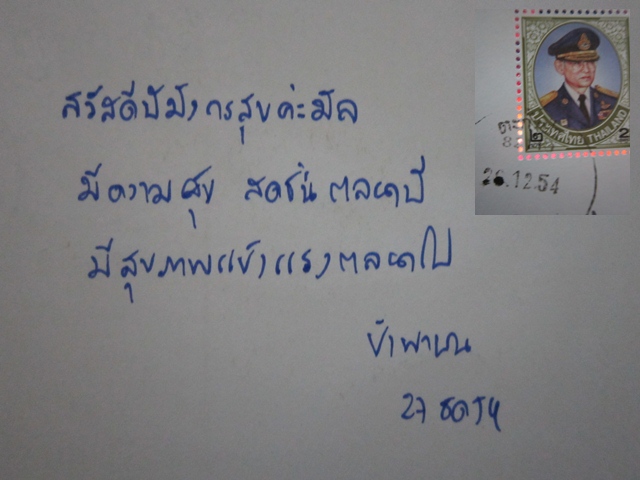 สวัสดีปีมังกรสุขค่ะมัล
มีความสุข สดชื่นตลอดปี
มีสุขภาพแข็งแรงตลอดไป
ป้าพาน
27 ธค 54
ประเทศไทย THAILAND
๒ 2
26.12.54